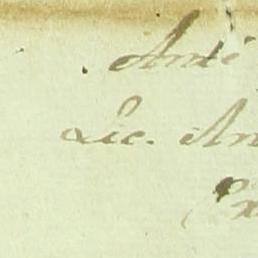 Anté
Lic. An